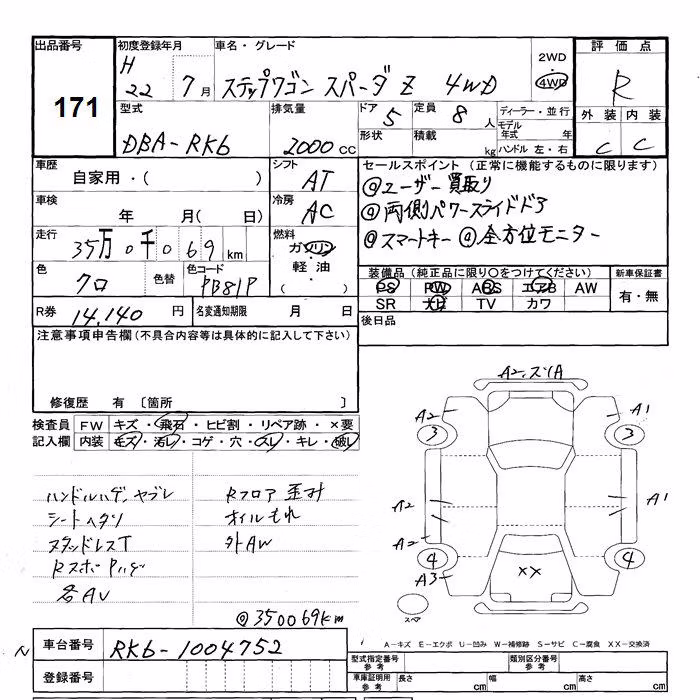 出品番号 初度登録年月 車名・グレード 評価点
171
H 22 7月 ステップワゴン スパーダ Z 4WD 2WD・4WD R
型式 排気量 ドア 定員 ディーラー・並行
DBA-RK6 2000cc 5 8人 モデル年式 年 外装 内装
形状 積載 kg ハンドル 左・右 C C
車歴 シフト セールスポイント(正常に機能するものに限ります)
自家用・( ) AT ◎ユーザー買取り
車検 冷房 ◎両側パワースライドドア
年 月( 日) AC ◎スマートキー ◎全方位モニター
走行 燃料
35万0千069km ガソリン・軽油・( )
色 色替 色コード 装備品(純正品に限り○をつけてください) 新車保証書
クロ PB81P PS PW ABS エアB AW 有・無
SR ナビ TV カワ
R券 14,140円 名変通知期限 月 日 後日品
注意事項申告欄(不具合内容等は具体的に記入して下さい)
修復歴 有 〔箇所 〕
検査員記入欄 FW キズ・飛石・ヒビ割・リペア跡・×要
内装 キズ・汚レ・コゲ・穴・スレ・キレ・破レ
ハンドルハゲ、ヤブレ Rフロア歪み
シートヘタリ オイルもれ
スタッドレスT 外AW
各AV
◎350069km
A2
A2 A1
3 3
A2 A1
A2
4 4
A3
XX
スペア
車台番号 RK6-1004752
登録番号
A-キズ E-エクボ U-凹み W-補修跡 S-サビ C-腐食 XX-交換済
型式指定番号参考 類別区分番号参考
車庫証明用参考 長さ cm 幅 cm 高さ cm